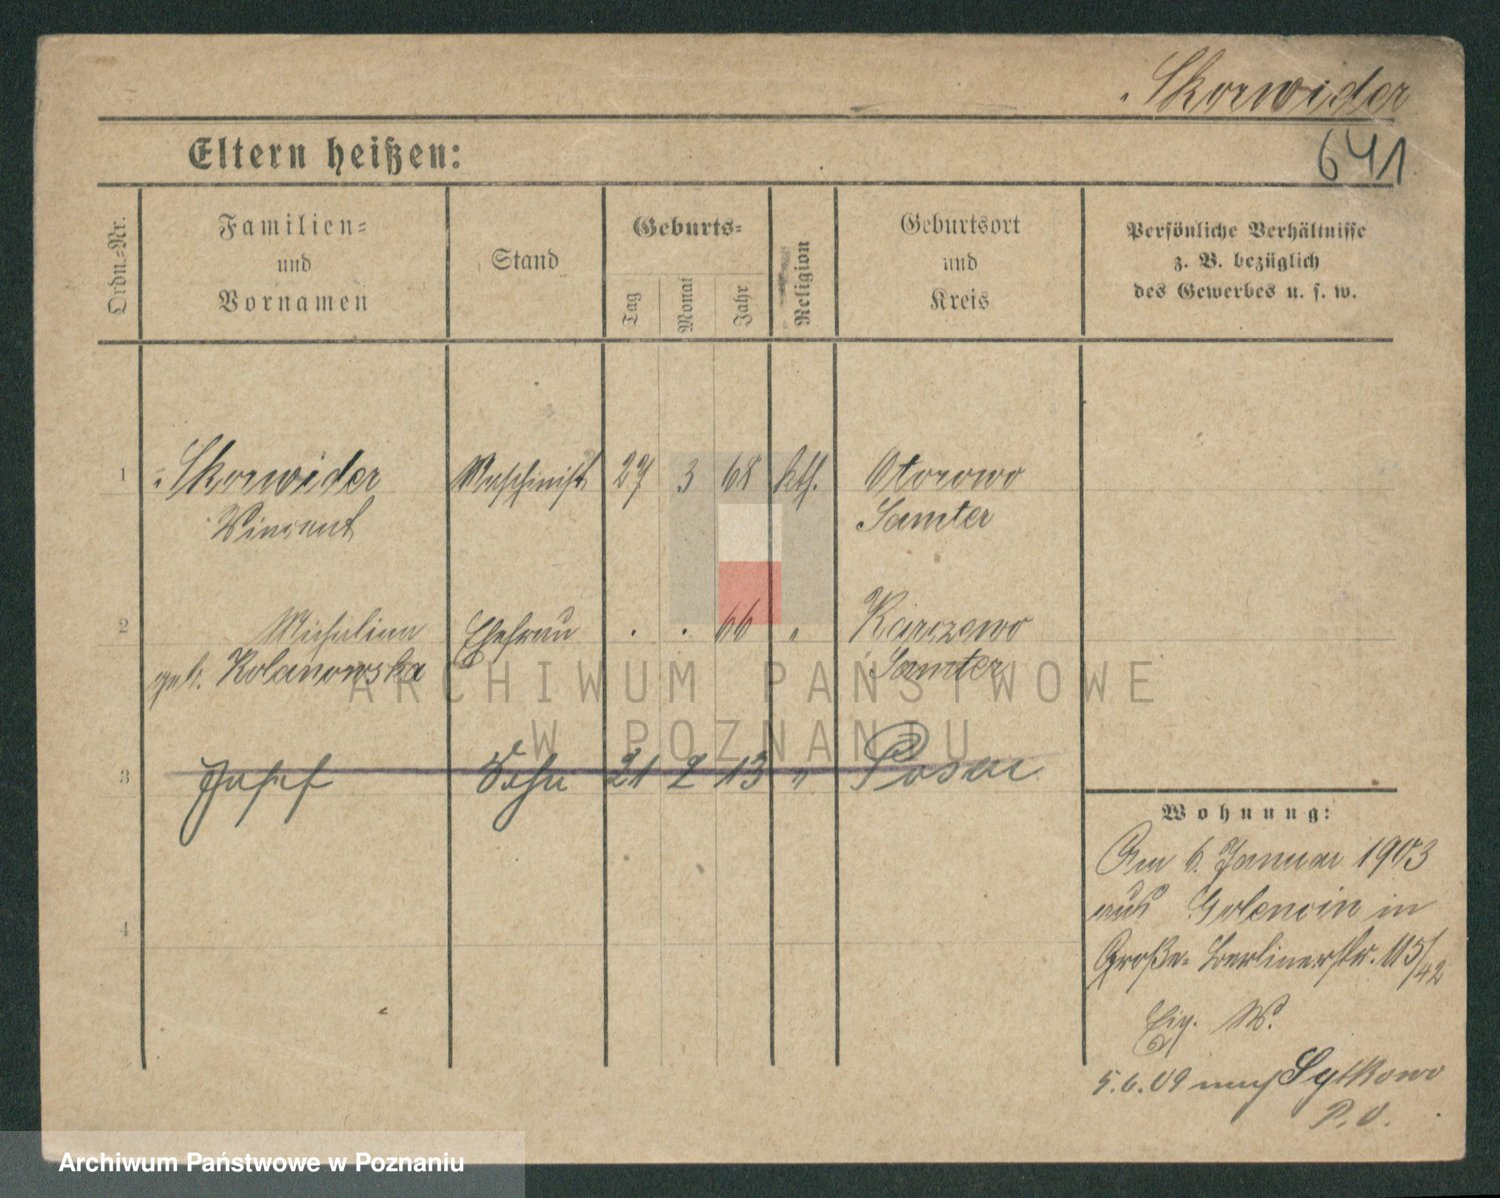 Skorwider
641
Eltern heißen:
Ordn.-Nr.
Familien-
und
Vornamen
Stand
Geburts-
Tag
Monat
Jahr
Religion
Geburtsort
und
Kreis
Persönliche Verhältnisse
z. B. bezüglich
des Gewerbes u. s. w.
1 Skorwider Maschinist 27 3 68 kth. Otorowo
Vincent Samter
2 Michalina Ehefrau . . 66 " Karczewo
geb. Kolanowska Samter
3 Josef Sohn 21 2 13 " Posen
4
Wohnung:
Am 6. Januar 1903
aus Golencin in
Große Berlinerstr. 115/42
Eig. W.
5.6.09 nach Sytkowo
P. O.
ARCHIWUM PAŃSTWOWE
W POZNANIU
Archiwum Państwowe w Poznaniu